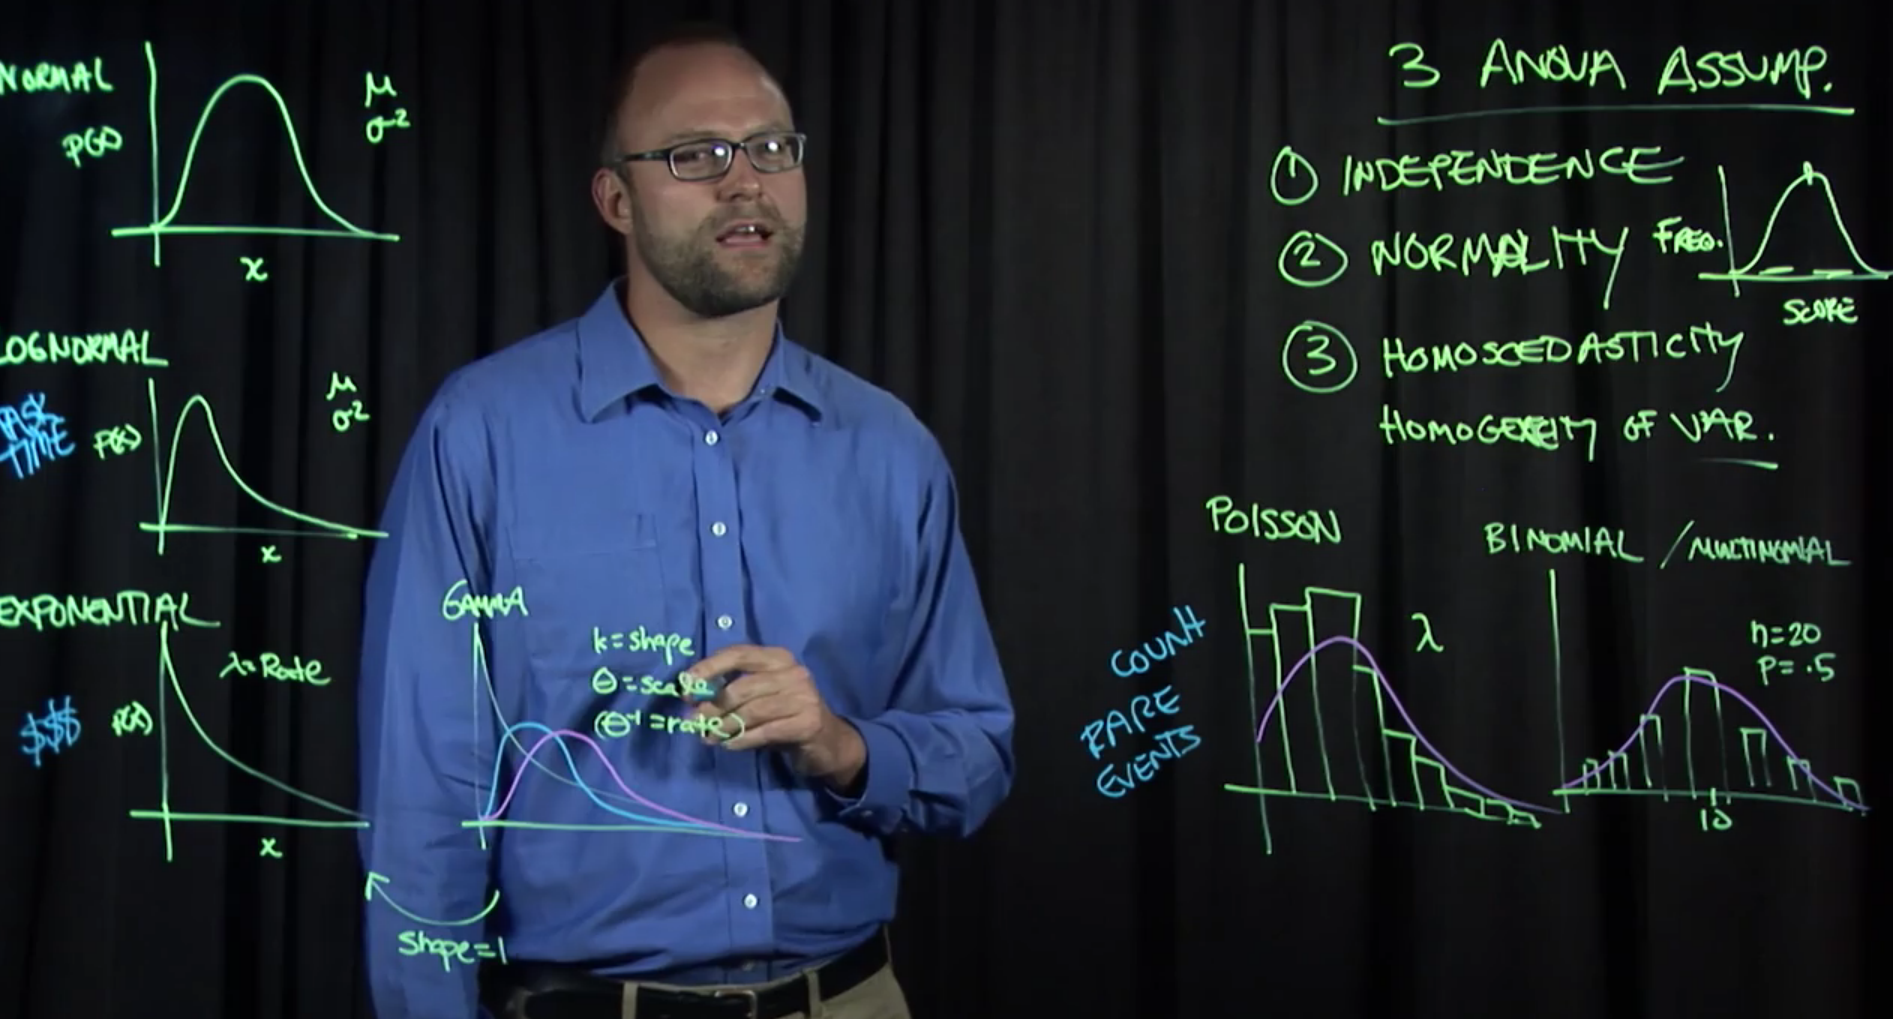 NORMAL
P(x)
μ
σ²
x
LOGNORMAL
TASK
TIME
P(x)
μ
σ²
x
EXPONENTIAL
λ=Rate
$$$
P(x)
x
GAMMA
k=shape
θ=scale
(θ⁻¹=rate)
shape=1
3 ANOVA ASSUMP.
① INDEPENDENCE
② NORMALITY
FREQ.
SCORE
③ HOMOSCEDASTICITY
HOMOGENEITY OF VAR.
POISSON
λ
COUNT
RARE
EVENTS
BINOMIAL / MULTINOMIAL
n=20
P=.5
10